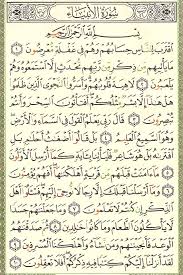 سُورَةُ الأَنبِيَاءِ
بِسْمِ ٱللَّهِ ٱلرَّحْمَٰنِ ٱلرَّحِيمِ
ٱقْتَرَبَ لِلنَّاسِ حِسَابُهُمْ وَهُمْ فِي غَفْلَةٍ مُّعْرِضُونَ ١
مَا يَأْتِيهِم مِّن ذِكْرٍ مِّن رَّبِّهِم مُّحْدَثٍ إِلَّا ٱسْتَمَعُوهُ وَهُمْ
يَلْعَبُونَ ٢ لَاهِيَةً قُلُوبُهُمْ وَأَسَرُّوا۟ ٱلنَّجْوَى ٱلَّذِينَ ظَلَمُوا۟
هَلْ هَٰذَآ إِلَّا بَشَرٌ مِّثْلُكُمْ أَفَتَأْتُونَ ٱلسِّحْرَ وَأَنتُمْ
تُبْصِرُونَ ٣ قَالَ رَبِّي يَعْلَمُ ٱلْقَوْلَ فِي ٱلسَّمَآءِ وَٱلْأَرْضِ
وَهُوَ ٱلسَّمِيعُ ٱلْعَلِيمُ ٤ بَلْ قَالُوٓا۟ أَضْغَٰثُ أَحْلَٰمٍ بَلِ
ٱفْتَرَىٰهُ بَلْ هُوَ شَاعِرٌ فَلْيَأْتِنَا بِـَٔايَةٍ كَمَآ أُرْسِلَ ٱلْأَوَّلُونَ ٥
مَآ ءَامَنَتْ قَبْلَهُم مِّن قَرْيَةٍ أَهْلَكْنَٰهَآ أَفَهُمْ يُؤْمِنُونَ ٦
وَمَآ أَرْسَلْنَا قَبْلَكَ إِلَّا رِجَالًا نُّوحِىٓ إِلَيْهِمْ فَسْـَٔلُوٓا۟ أَهْلَ
ٱلذِّكْرِ إِن كُنتُمْ لَا تَعْلَمُونَ ٧ وَمَا جَعَلْنَٰهُمْ جَسَدًا
لَّا يَأْكُلُونَ ٱلطَّعَامَ وَمَا كَانُوا۟ خَٰلِدِينَ ٨ ثُمَّ صَدَقْنَٰهُمُ
ٱلْوَعْدَ فَأَنجَيْنَٰهُمْ وَمَن نَّشَآءُ وَأَهْلَكْنَا ٱلْمُسْرِفِينَ ٩
لَقَدْ أَنزَلْنَآ إِلَيْكُمْ كِتَٰبًا فِيهِ ذِكْرُكُمْ أَفَلَا تَعْقِلُونَ ١٠